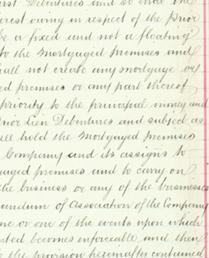 First Debentures and so that the
terest owing in respect of the Prior
be a fixed and not a floating
the mortgaged premises and
shall not create any mortgage or
ed premises or any part thereof
priority to the principal money and
Prior Lien Debentures and subject as
all hold the Mortgaged premises
Company and its assigns to
gaged premises and to carry on
the business or any of the businesses
randum of Association of the Company
one or one of the events upon which
ated becomes enforceable and then
to the provision hereinafter contained